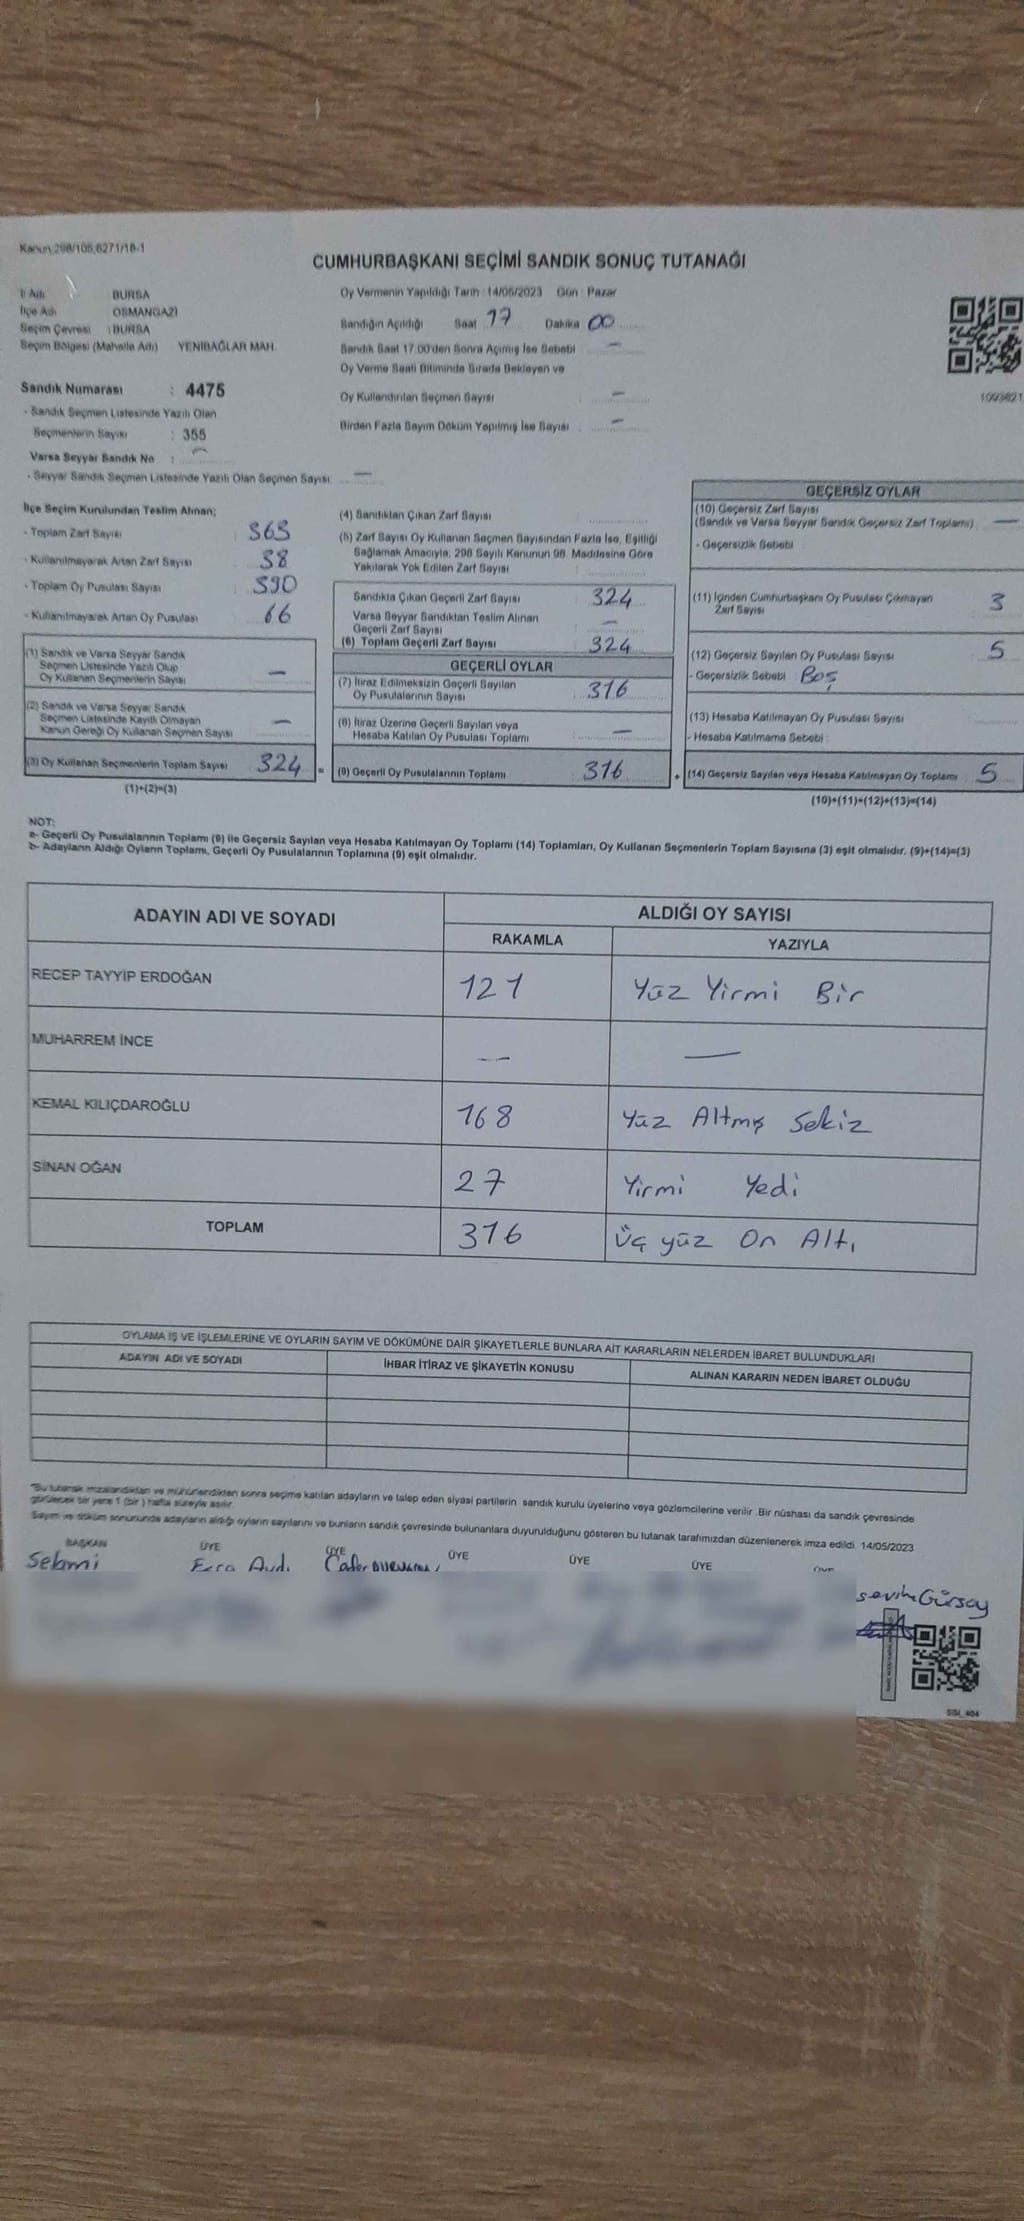 Kanun:298/105,6271/18-1
CUMHURBAŞKANI SEÇİMİ SANDIK SONUÇ TUTANAĞI
İl Adı BURSA
İlçe Adı OSMANGAZİ
Seçim Çevresi : BURSA
Seçim Bölgesi (Mahalle Adı) YENİBAĞLAR MAH.
Oy Vermenin Yapıldığı Tarih : 14/05/2023 Gün : Pazar
Sandığın Açıldığı Saat 17 Dakika 00
Sandık Saat 17:00'den Sonra Açılmış İse Sebebi : —
Oy Verme Saati Bitiminde Sırada Bekleyen ve
Oy Kullandırılan Seçmen Sayısı : —
Birden Fazla Sayım Döküm Yapılmış İse Sayısı : —
Sandık Numarası : 4475
- Sandık Seçmen Listesinde Yazılı Olan
Seçmenlerin Sayısı : 355
Varsa Seyyar Sandık No : —
- Seyyar Sandık Seçmen Listesinde Yazılı Olan Seçmen Sayısı: —
İlçe Seçim Kurulundan Teslim Alınan;
- Toplam Zarf Sayısı : 363
- Kullanılmayarak Artan Zarf Sayısı : 38
- Toplam Oy Pusulası Sayısı : 390
- Kullanılmayarak Artan Oy Pusulası : 66
(1) Sandık ve Varsa Seyyar Sandık
Seçmen Listesinde Yazılı Olup
Oy Kullanan Seçmenlerin Sayısı —
(2) Sandık ve Varsa Seyyar Sandık
Seçmen Listesinde Kayıtlı Olmayan
Kanun Gereği Oy Kullanan Seçmen Sayısı —
(3) Oy Kullanan Seçmenlerin Toplam Sayısı 324 =
(1)+(2)=(3)
(4) Sandıktan Çıkan Zarf Sayısı
(5) Zarf Sayısı Oy Kullanan Seçmen Sayısından Fazla İse, Eşitliği
Sağlamak Amacıyla; 298 Sayılı Kanunun 98. Maddesine Göre
Yakılarak Yok Edilen Zarf Sayısı
Sandıkta Çıkan Geçerli Zarf Sayısı 324
Varsa Seyyar Sandıktan Teslim Alınan
Geçerli Zarf Sayısı —
(6) Toplam Geçerli Zarf Sayısı 324
GEÇERLİ OYLAR
(7) İtiraz Edilmeksizin Geçerli Sayılan
Oy Pusulalarının Sayısı 316
(8) İtiraz Üzerine Geçerli Sayılan veya
Hesaba Katılan Oy Pusulası Toplamı —
(9) Geçerli Oy Pusulalarının Toplamı 316 +
GEÇERSİZ OYLAR
(10) Geçersiz Zarf Sayısı
(Sandık ve Varsa Seyyar Sandık Geçersiz Zarf Toplamı) —
- Geçersizlik Sebebi
(11) İçinden Cumhurbaşkanı Oy Pusulası Çıkmayan
Zarf Sayısı 3
(12) Geçersiz Sayılan Oy Pusulası Sayısı 5
- Geçersizlik Sebebi Boş
(13) Hesaba Katılmayan Oy Pusulası Sayısı
- Hesaba Katılmama Sebebi :
(14) Geçersiz Sayılan veya Hesaba Katılmayan Oy Toplamı 5
(10)+(11)+(12)+(13)=(14)
NOT:
a- Geçerli Oy Pusulalarının Toplamı (9) ile Geçersiz Sayılan veya Hesaba Katılmayan Oy Toplamı (14) Toplamları, Oy Kullanan Seçmenlerin Toplam Sayısına (3) eşit olmalıdır. (9)+(14)=(3)
b- Adayların Aldığı Oyların Toplamı, Geçerli Oy Pusulalarının Toplamına (9) eşit olmalıdır.
ADAYIN ADI VE SOYADI ALDIĞI OY SAYISI
RAKAMLA YAZIYLA
RECEP TAYYİP ERDOĞAN 121 Yüz Yirmi Bir
MUHARREM İNCE — —
KEMAL KILIÇDAROĞLU 168 Yüz Altmış Sekiz
SİNAN OĞAN 27 Yirmi Yedi
TOPLAM 316 Üç yüz On Altı
OYLAMA İŞ VE İŞLEMLERİNE VE OYLARIN SAYIM VE DÖKÜMÜNE DAİR ŞİKAYETLERLE BUNLARA AİT KARARLARIN NELERDEN İBARET BULUNDUKLARI
ADAYIN ADI VE SOYADI İHBAR İTİRAZ VE ŞİKAYETİN KONUSU ALINAN KARARIN NEDEN İBARET OLDUĞU
"Bu tutanak imzalandıktan ve mühürlendikten sonra seçime katılan adayların ve talep eden siyasi partilerin sandık kurulu üyelerine veya gözlemcilerine verilir. Bir nüshası da sandık çevresinde
görülecek bir yere 1 (bir) hafta süreyle asılır.
Sayım ve döküm sonucunda adayların aldığı oyların sayılarını ve bunların sandık çevresinde bulunanlara duyurulduğunu gösteren bu tutanak tarafımızdan düzenlenerek imza edildi. 14/05/2023
BAŞKAN ÜYE ÜYE ÜYE ÜYE ÜYE
Gürsoy
SSI_404